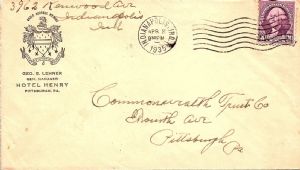 3962 Kenwood Ave
Indianapolis
Ind
INDIANAPOLIS, IND.
APR 8
1935
GEO. E. LEHNER
GEN. MANAGER
HOTEL HENRY
PITTSBURGH, PA.
Commonwealth Trust Co
Fourth Ave
Pittsburgh
Pa